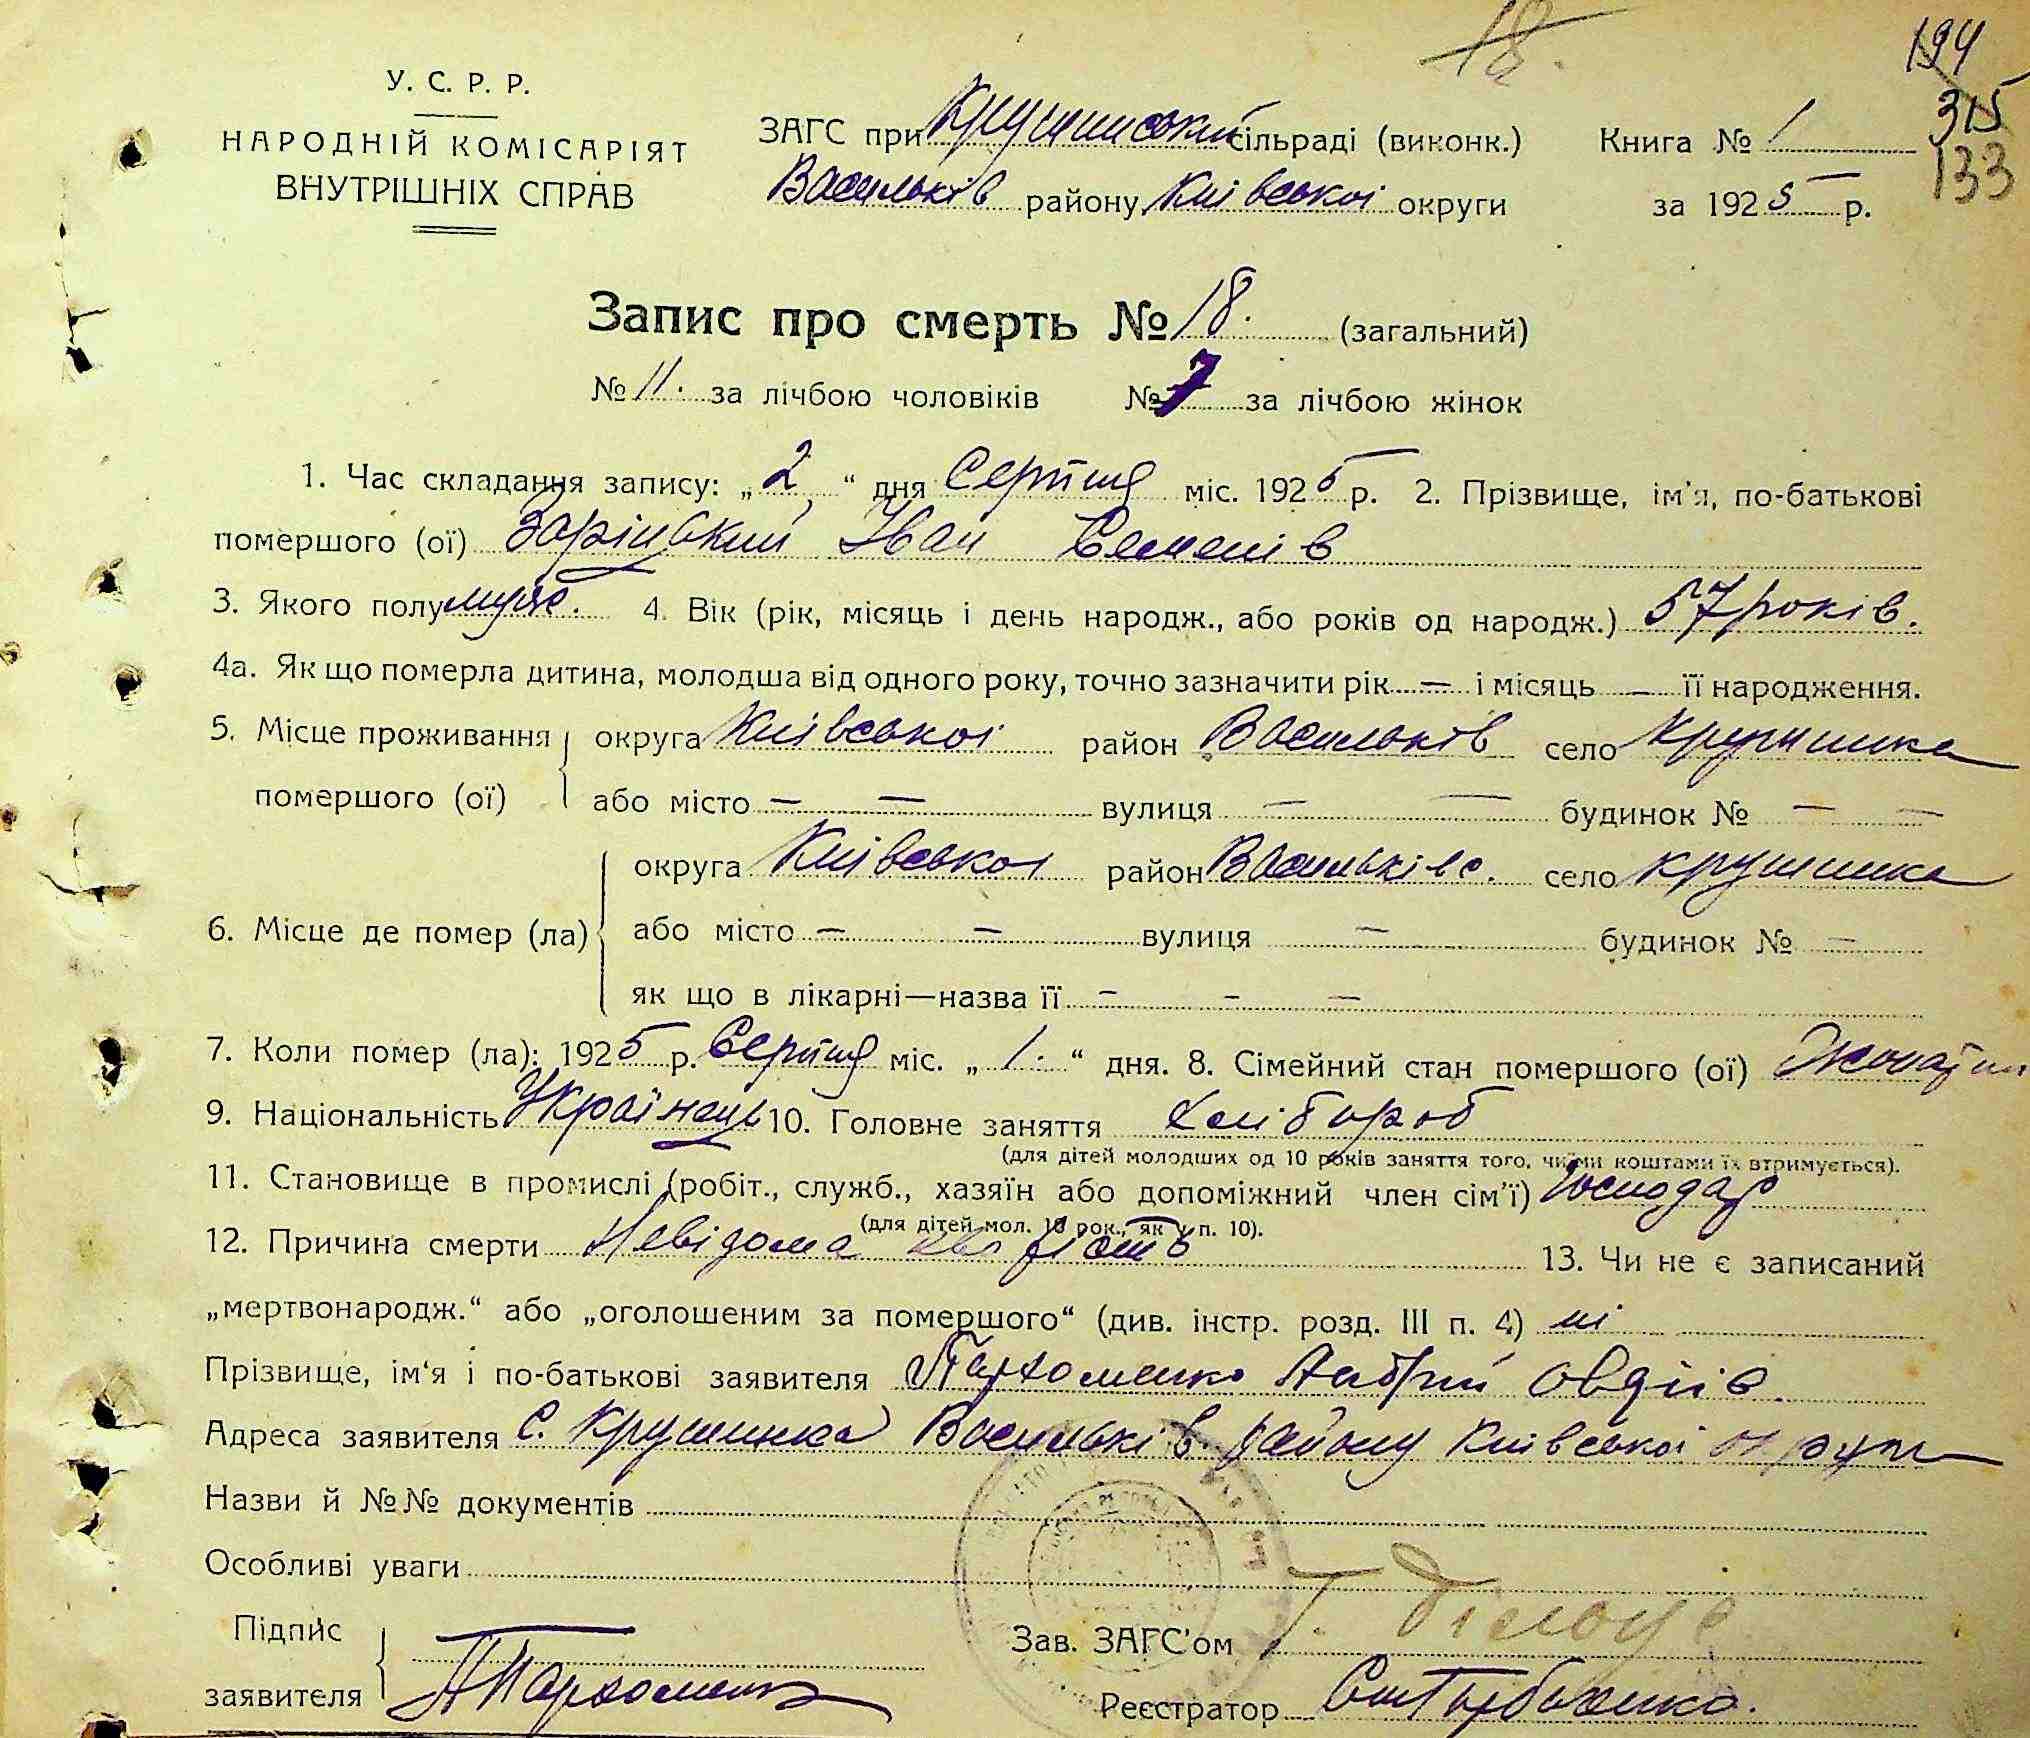 18.
194
315
133
У. С. Р. Р.
НАРОДНІЙ КОМІСАРІЯТ
ВНУТРІШНІХ СПРАВ
ЗАГС при Крушинський сільраді (виконк.)
Васильків району Київської округи
Книга № 1
за 1925 р.
Запис про смерть № 18. (загальний)
№ 11. за лічбою чоловіків № 7 за лічбою жінок
1. Час складання запису: „2“ дня Серпня міс. 1925 р. 2. Прізвище, ім'я, по-батькові
помершого (ої) Заріцький Іван Семенів
3. Якого полу муж. 4. Вік (рік, місяць і день народж., або років од народж.) 57 років.
4а. Як що померла дитина, молодша від одного року, точно зазначити рік — і місяць — її народження.
5. Місце проживання помершого (ої) округа Київської район Васильків село Крушинка
або місто — — вулиця — — будинок № — —
6. Місце де помер (ла) округа Київської район Васильківс. село Крушинка
або місто — — вулиця — будинок № —
як що в лікарні—назва її — — —
7. Коли помер (ла): 1925 р. Серпня міс. „1.“ дня. 8. Сімейний стан помершого (ої) Жонатий
9. Національність Українець 10. Головне заняття Хлібороб
(для дітей молодших од 10 років заняття того, чиїми коштами їх втримується).
11. Становище в промислі (робіт., служб., хазяїн або допоміжний член сім'ї) Господар
(для дітей мол. 10 рок., як у п. 10).
12. Причина смерти Невідома 13. Чи не є записаний
„мертвонародж.“ або „оголошеним за помершого“ (див. інстр. розд. III п. 4) ні
Прізвище, ім'я і по-батькові заявителя Пархоменко Овдіїв
Адреса заявителя С. Крушинка Васильків. району Київської округи
Назви й №№ документів
Особливі уваги
Підпис заявителя АПархоменко
Зав. ЗАГС'ом
Реєстратор